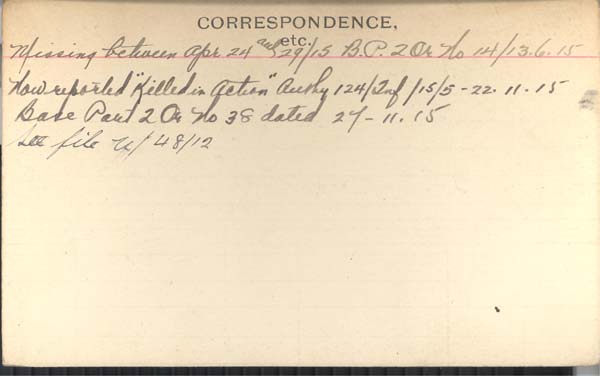 CORRESPONDENCE,
etc.
Missing between Apr 24 and 29/15 B.P. 2 Or No 14/13.6.15
Now reported "Killed in Action" Authy 124/Inf/15/5-22.11.15
Base Part 2 Or No 38 dated 27-11.15
See file 48/12